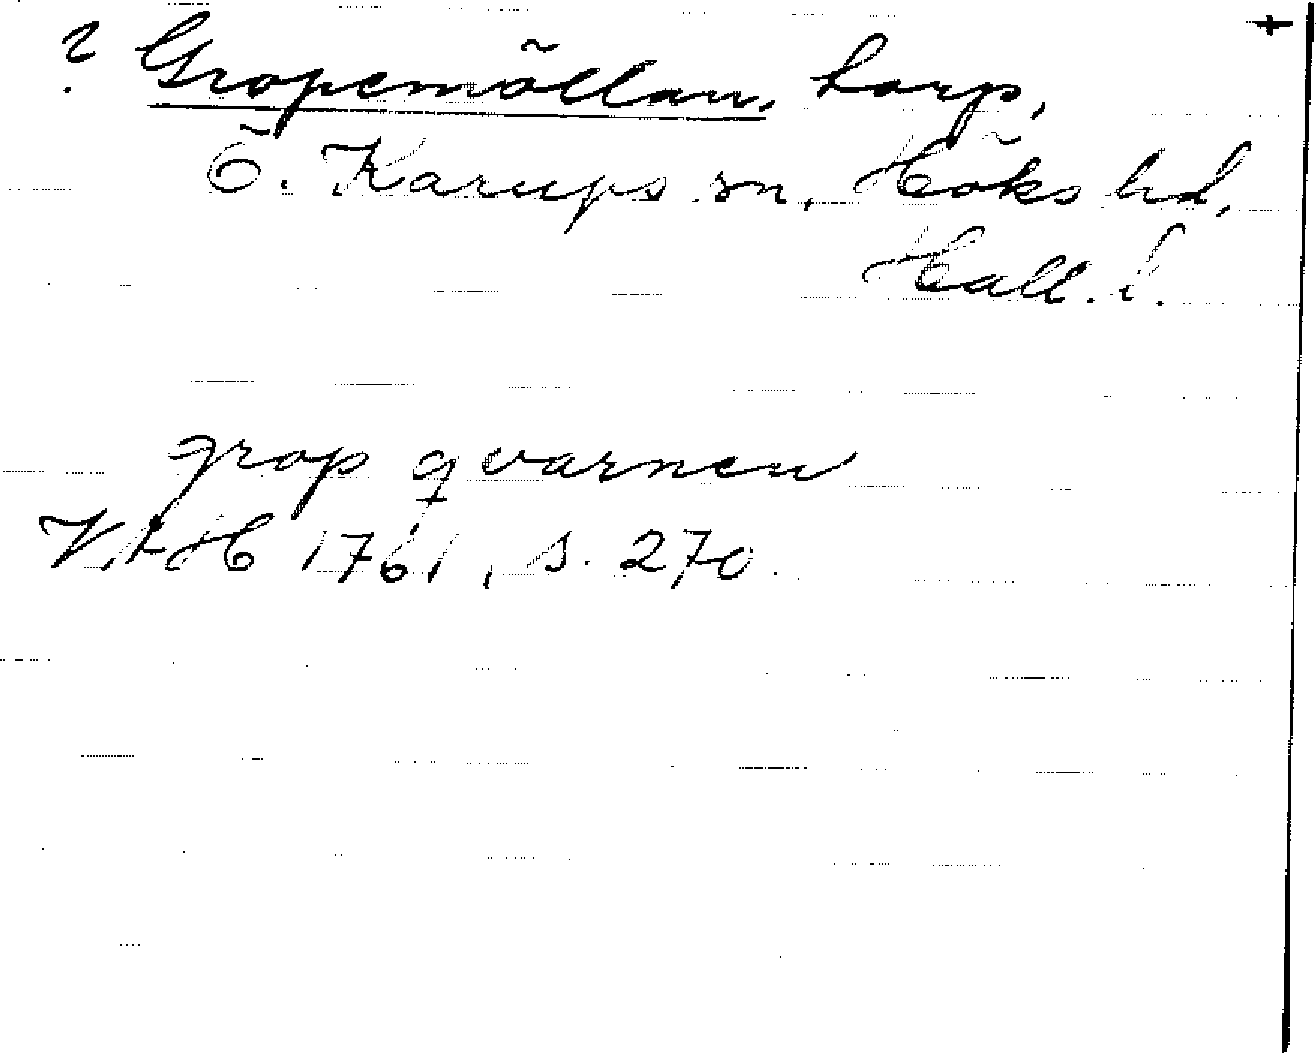 ? Gropemöllan, torp, +
Ö. Karups sn, Höks hd,
Hall. l.
grop qvarnen
VAH 1761, s. 270.